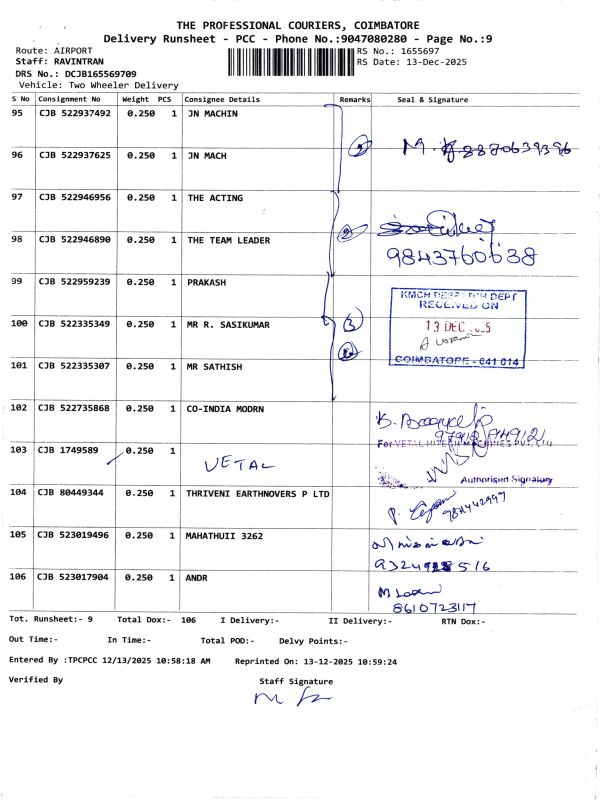 THE PROFESSIONAL COURIERS, COIMBATORE
Delivery Runsheet - PCC - Phone No.:9047080280 - Page No.:9
Route: AIRPORT
RS No.: 1655697
Staff: RAVINTRAN
RS Date: 13-Dec-2025
DRS No.: DCJB165569709
Vehicle: Two Wheeler Delivery
S No Consignment No Weight PCS Consignee Details Remarks Seal & Signature
95 CJB 522937492 0.250 1 JN MACHIN
96 CJB 522937625 0.250 1 JN MACH
97 CJB 522946956 0.250 1 THE ACTING
98 CJB 522946890 0.250 1 THE TEAM LEADER 2
9843760638
99 CJB 522959239 0.250 1 PRAKASH
KMCH DEPT
RECEIVED ON
100 CJB 522335349 0.250 1 MR R. SASIKUMAR 3
13 DEC
101 CJB 522335307 0.250 1 MR SATHISH
COIMBATORE - 641 014
102 CJB 522735868 0.250 1 CO-INDIA MODRN
For VETAL
103 CJB 1749589 0.250 1 VETAL
Authorised Signatory
104 CJB 80449344 0.250 1 THRIVENI EARTHNOVERS P LTD
105 CJB 523019496 0.250 1 MAHATHUII 3262
106 CJB 523017904 0.250 1 ANDR
8610723117
Tot. Runsheet:- 9 Total Dox:- 106 I Delivery:- II Delivery:- RTN Dox:-
Out Time:- In Time:- Total POD:- Delvy Points:-
Entered By :TPCPCC 12/13/2025 10:58:18 AM Reprinted On: 13-12-2025 10:59:24
Verified By Staff Signature